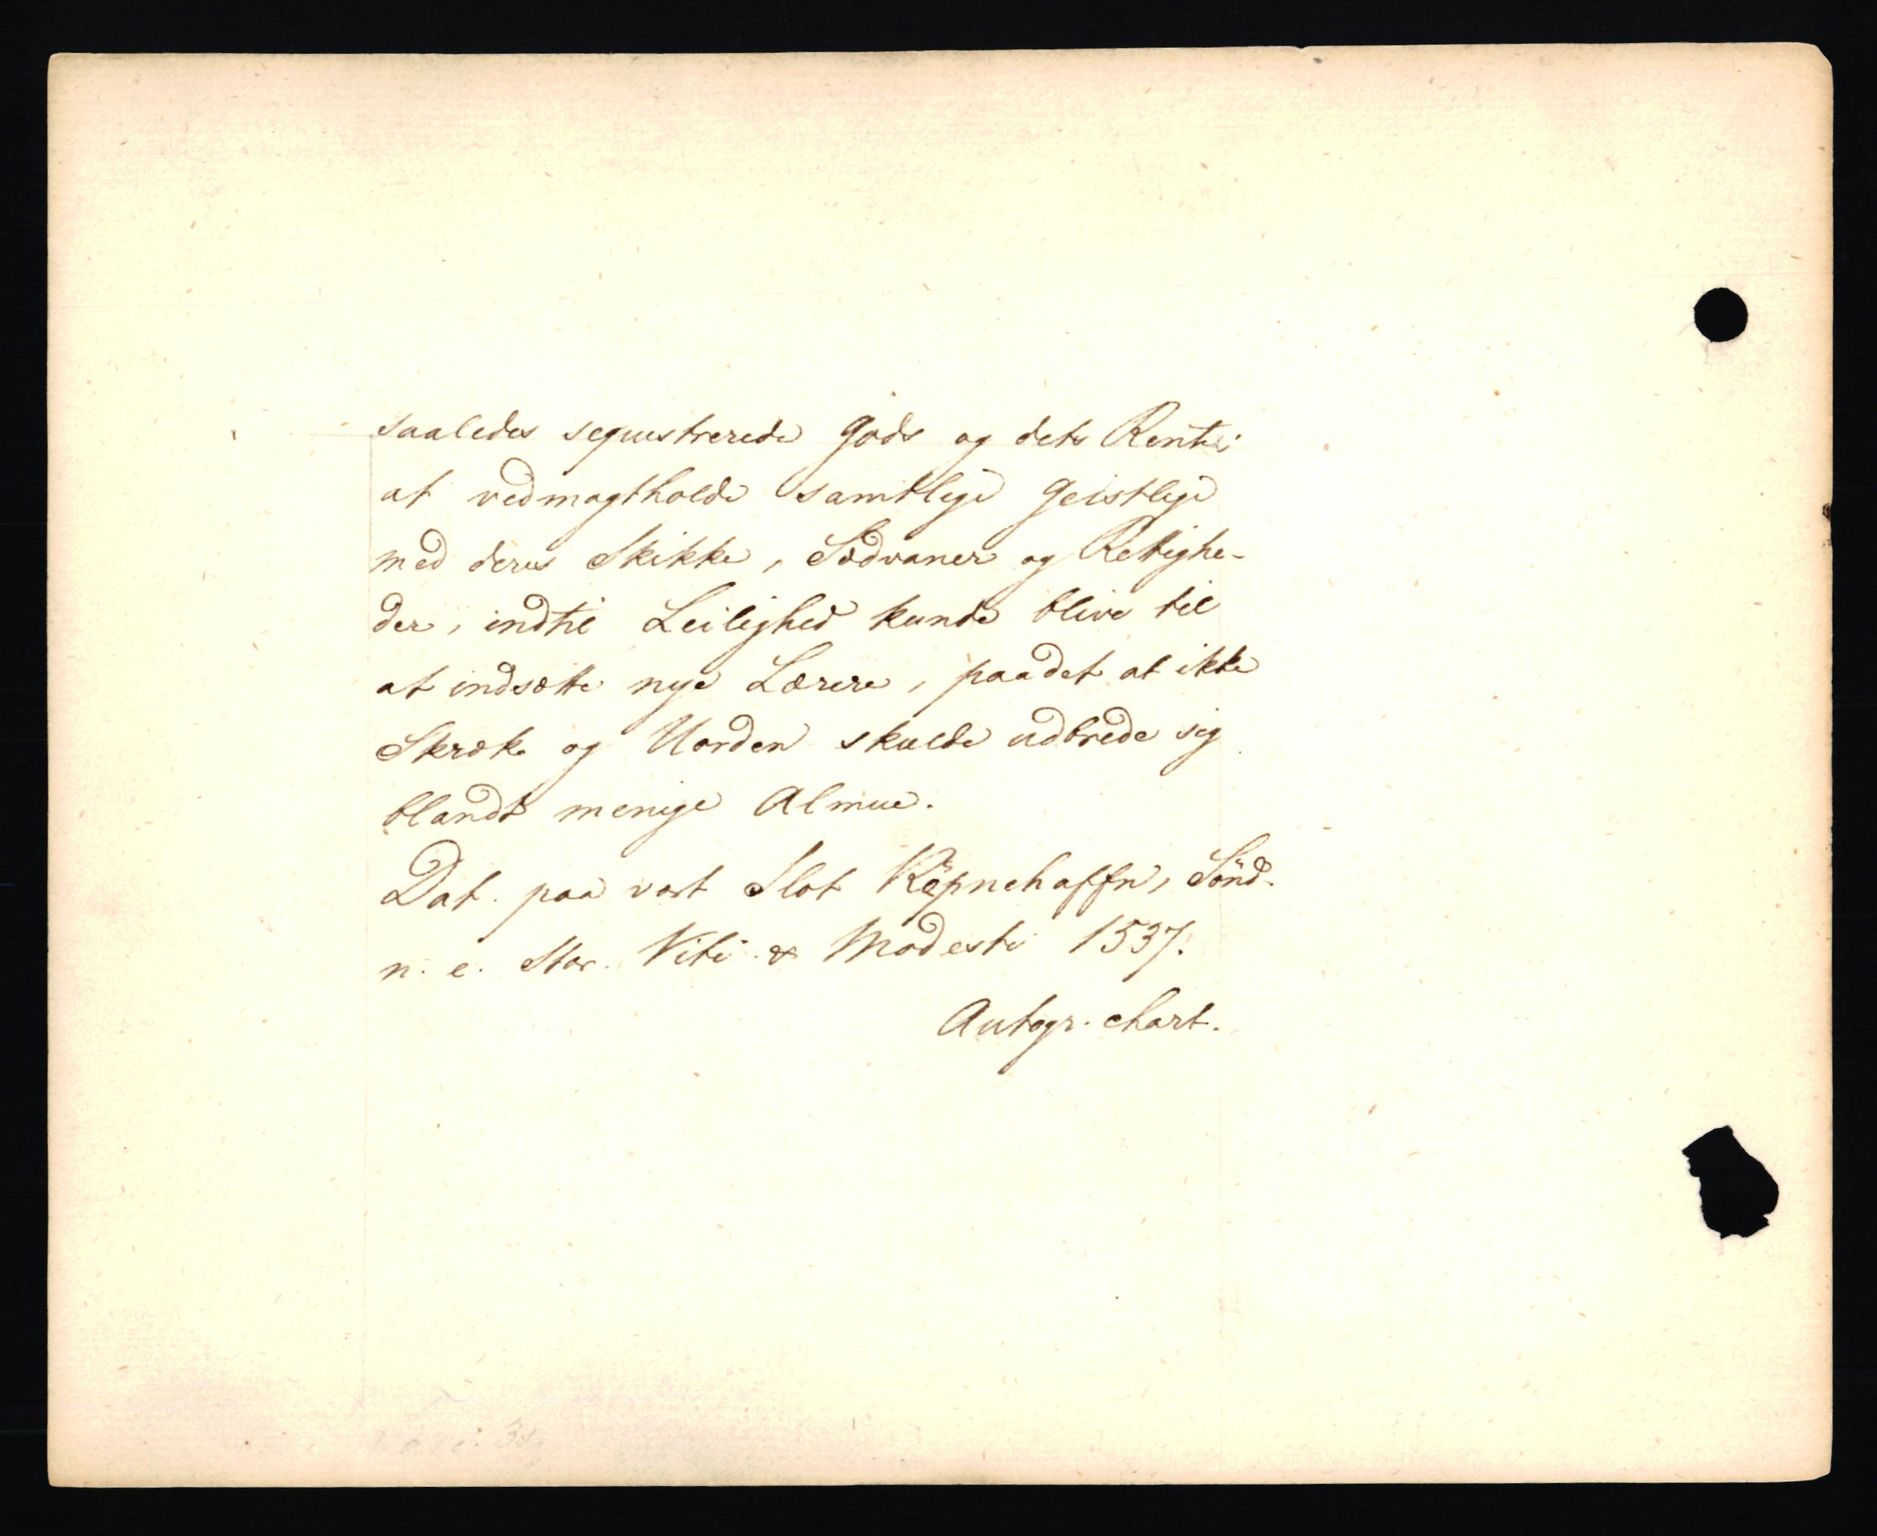 saaledes sequestrerede Gods og dets Rente
at vedmagtholde samtlige Geistlige
med deres Skikke, Sædvaner og Rettighe-
der, indtil Leilighed kunde blive til
at indsætte nye Lærere, paadet at ikke
Skræk og Uorden skulde udbrede sig
blandt menige Almue.
Dat. paa vort Slot Köpnehaffn, Sönd.
n. e. Stor. Viti & Modesti 1537.
Autogr. chart.